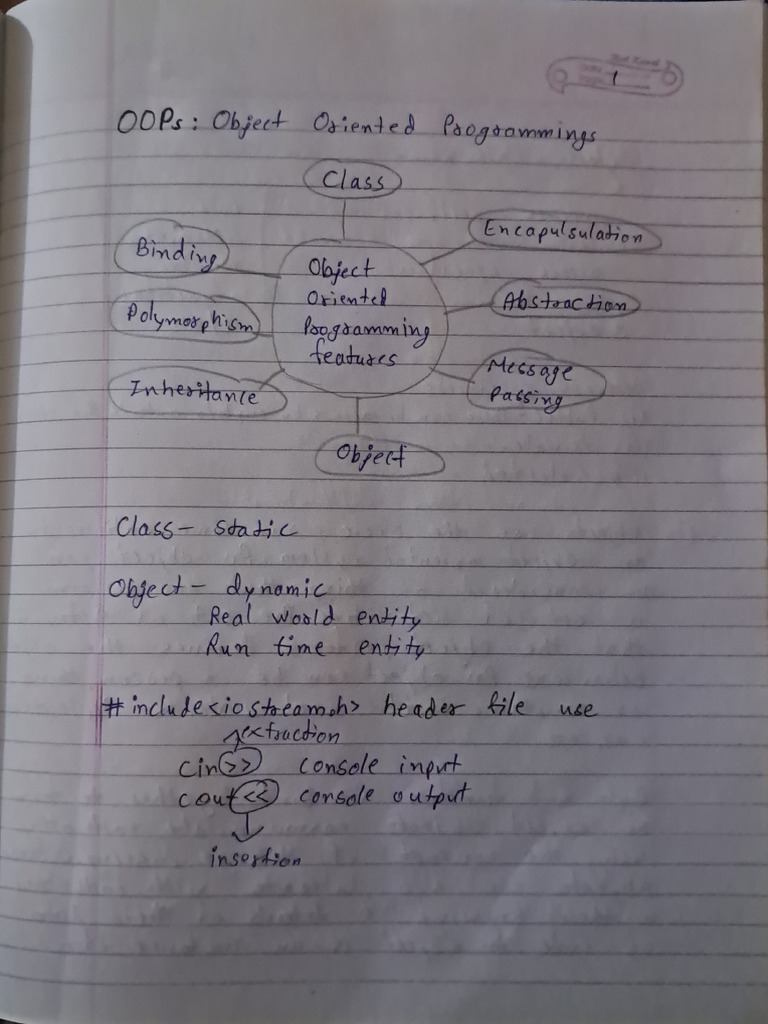 1
OOPs: Object Oriented Programmings
Class
Encapulsulation
Binding
Object
Oriented
Programming
features
Abstraction
Polymorphism
Message
Passing
Inheritance
Object
Class - static
Object - dynamic
Real world entity
Run time entity
#include<iostream.h> header file use
extraction
cin>> console input
cout<< console output
insertion